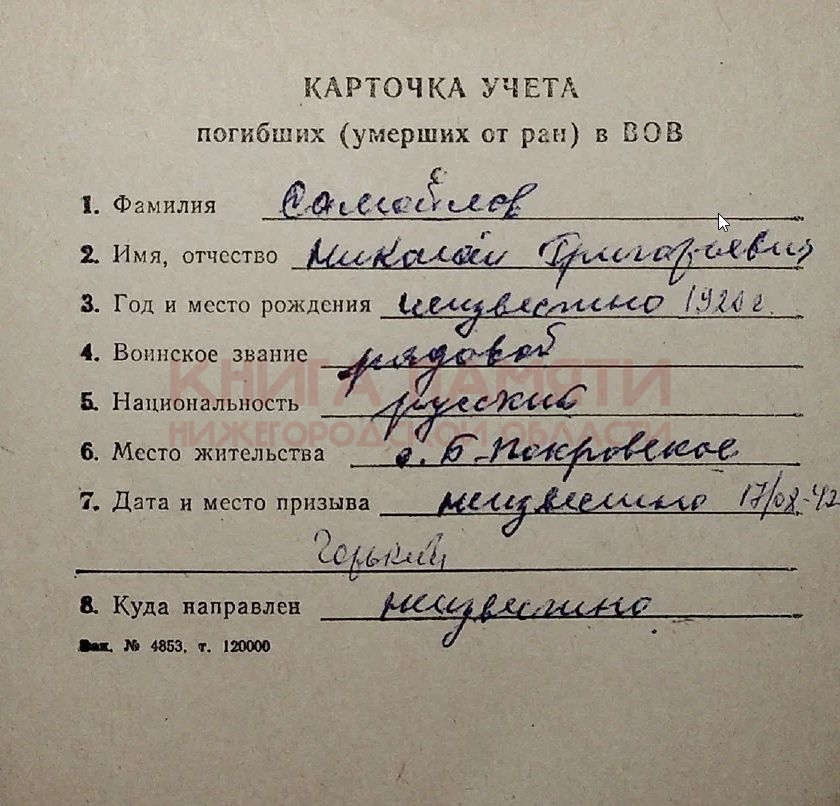 КАРТОЧКА УЧЕТА
погибших (умерших от ран) в ВОВ
1. Фамилия Самойлов
2. Имя, отчество Николай Григорьевич
3. Год и место рождения неизвестно 1920 г.
4. Воинское звание рядовой
5. Национальность русский
КНИГА ПАМЯТИ
НИЖЕГОРОДСКОЙ ОБЛАСТИ
6. Место жительства с. Б-Покровское
7. Дата и место призыва неизвестно 17/08-42
Горький
8. Куда направлен неизвестно
Зак. № 4853, т. 120000